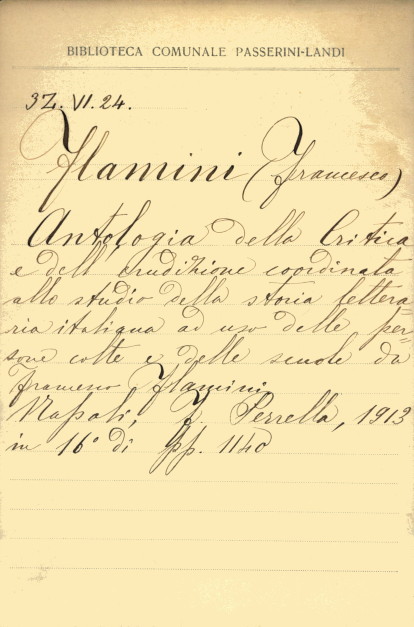 BIBLIOTECA COMUNALE PASSERINI-LANDI
3Z. VI. 24.
Flamini (Francesco)
Antologia della Critica
e dell'erudizione coordinata
allo studio della storia lettera=
ria italiana ad uso delle per=
sone colte e delle scuole da
Francesco Flamini
Napoli, F. Perrella, 1913
in 16° di pp. 1140